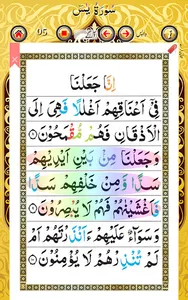 سُوْرَةُ يٰسٓ
05
اِنَّا جَعَلْنَا
فِیْۤ اَعْنَاقِهِمْ اَغْلٰلًا فَهِیَ اِلَی
الْاَذْقَانِ فَهُمْ مُّقْمَحُوْنَ
وَجَعَلْنَا مِنْۢ بَیْنِ اَیْدِیْهِمْ
سَدًّا وَّمِنْ خَلْفِهِمْ سَدًّا
فَاَغْشَیْنٰهُمْ فَهُمْ لَا یُبْصِرُوْنَ
وَسَوَآءٌ عَلَیْهِمْ ءَاَنْذَرْتَهُمْ اَمْ
لَمْ تُنْذِرْهُمْ لَا یُؤْمِنُوْنَ